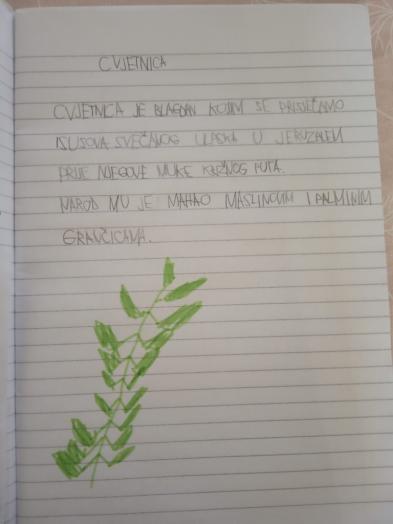 CVJETNICA
CVJETNICA JE BLAGDAN KOJIM SE PRISJEĆAMO
ISUSOVA SVEČANOG ULASKA U JERUZALEM
PRIJE NJEGOVE MUKE KRIŽNOG PUTA.
NAROD MU JE MAHAO MASLINOVIM I PALMINIM
GRANČICAMA.